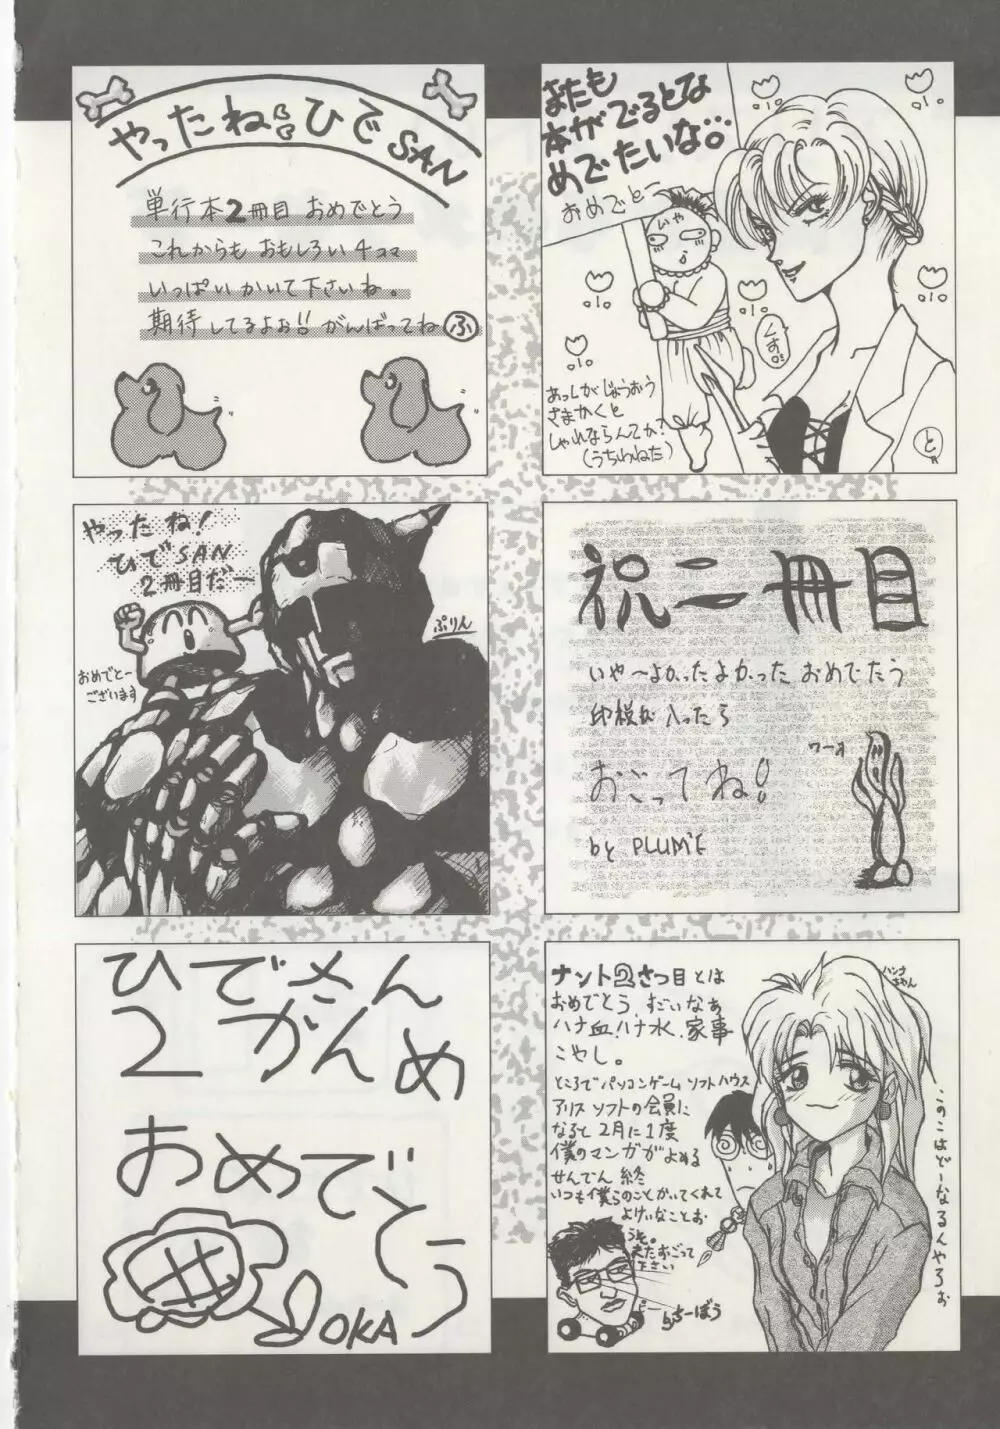 やったね!!ひでSAN
単行本2冊目 おめでとう
これからも おもしろい4コマ
いっぱいかいて下さいね。
期待してるよぉ!! がんばってね ふ
またも
本がでるとな
めでたいな。
おめでとー
いや
くす。
あっしがじょうおう
さまかくと
しゃれならんてか?
(うちわねた)
と
やったね!
ひでSAN
2冊目だー
ぷりん
おめでとー
ございます
祝二冊目
いや〜よかったよかった おめでたう
印税が入ったら
おごってね!
ワーオ
by PLUM
ひでさん
2かんめ
おめでとう
OKA
ナント2さつ目とは
おめでとう、すごいなぁ
ハナ血、ハナ水、家事
こやし。
ところでパソコンゲーム ソフトハウス
アリスソフトの会員に
なると 2月に1度
僕のマンガがよめる
せんでん 終
いつも僕らのことかいてくれて
よけいなことお
うそ。
またすごって
下さい
らちーぼう
ハンナちゃん
このこはどーなるんやろぉ